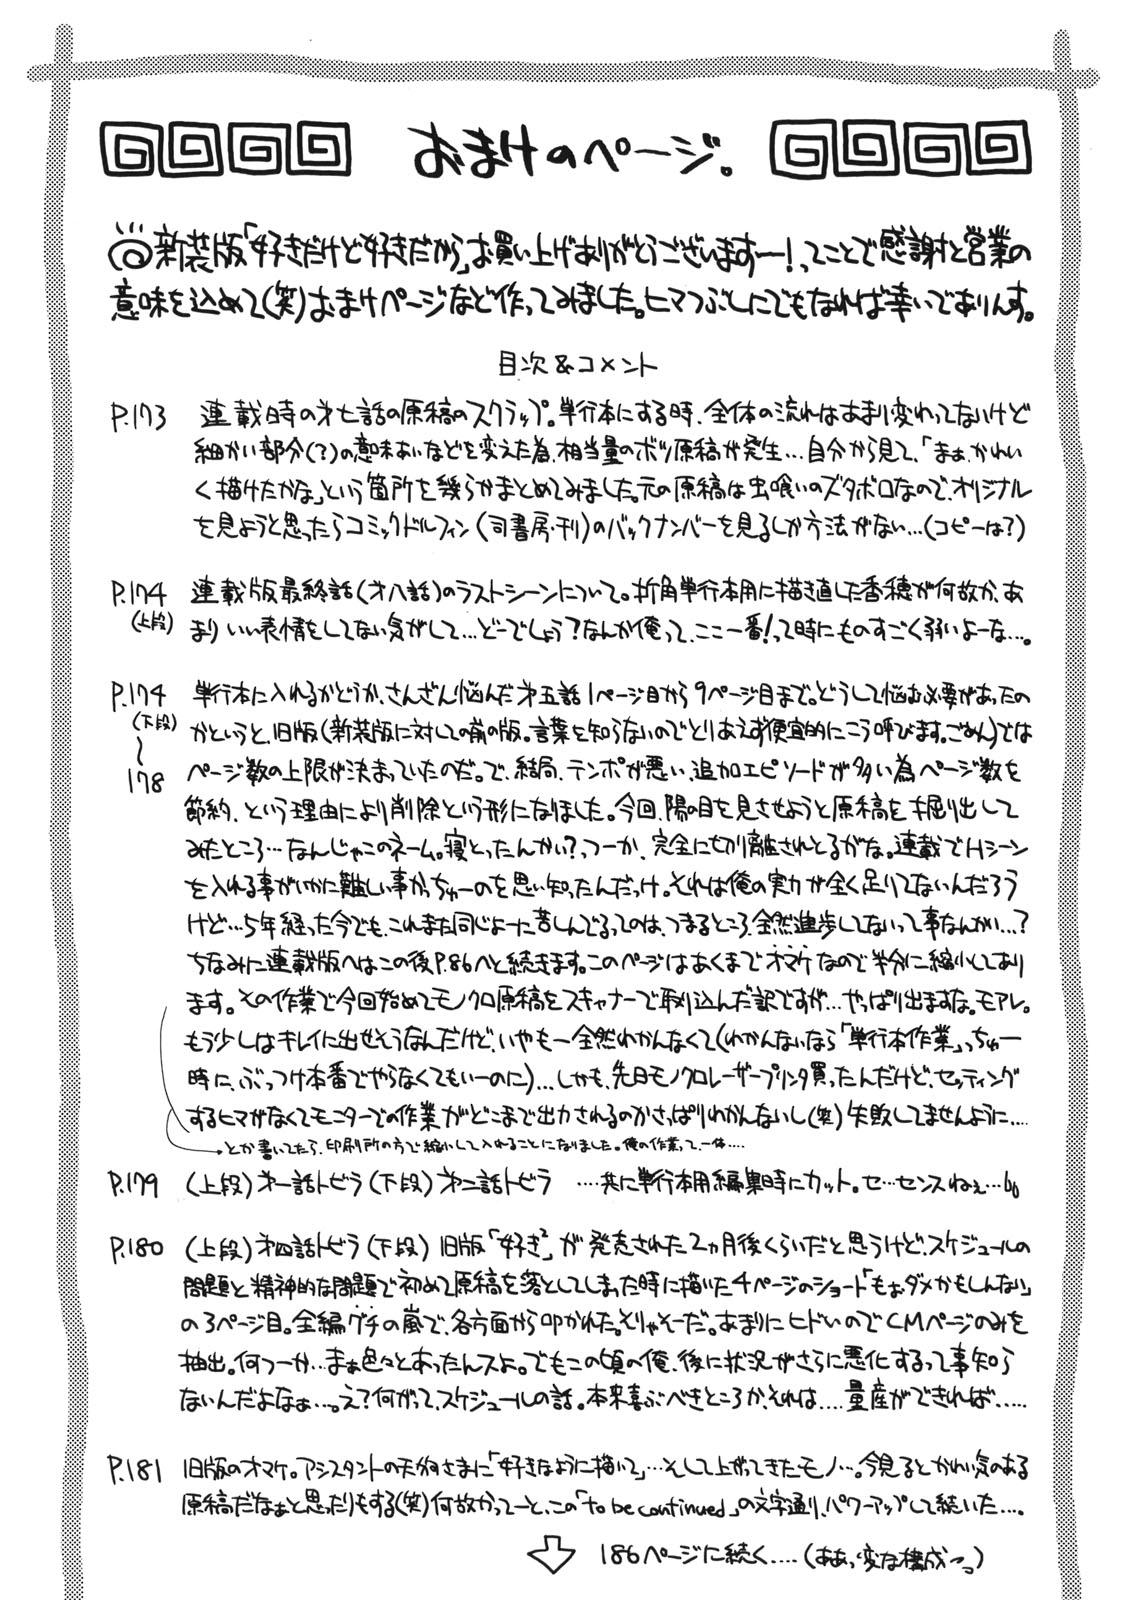 おまけのページ。
新装版「好きだけど好きだから」お買い上げありがとうございますー！ってことで感謝と営業の
意味を込めて(笑)おまけページなど作ってみました。ヒマつぶしにでもなれば幸いでありんす。
目次&コメント
P.173 連載時の才七話の原稿のスクラップ。単行本にする時、全体の流れはあまり変わってないけど
細かい部分(?)の意味あいなどを変えた為、相当量のボツ原稿が発生…自分から見て、「まぁ、かわい
く描けたかな」という箇所を幾らかまとめてみました。元の原稿は虫喰いのズタボロなので、オリジナル
を見ようと思ったらコミックドルフィン(司書房・刊)のバックナンバーを見るしか方法がない…(コピーは?)
P.174 連載版最終話(才八話)のラストシーンについて。折角単行本用に描き直した香穂が何故か、あ
(上段) まりいい表情をしてない気がして…どーでしょう?なんか俺って、ここ一番!って時にものすごく弱いよーな…。
P.174 単行本に入れるかどうか、さんざん悩んだ才五話1ページ目から9ページ目まで。どうして悩む必要があったの
(下段) かというと、旧版(新装版に対しての前の版。言葉を知らないのでとりあえず便宜的にこう呼びます。ごめん)では
〜
178 ページ数の上限が決まっていたのだ。で、結局、テンポが悪い、追加エピソードが多い為ページ数を
節約、という理由により削除という形になりました。今回、陽の目を見させようと原稿を掘り出して
みたところ…なんじゃこのネーム。寝とったんかい?っつーか、完全に切り離されとるがな。連載でHシーン
を入れる事がいかに難しい事かっちゅーのを思い知ったんだっけ。それは俺の実力が全く足りてないんだろう
けど…5年経った今でも、これまた同じよーに苦しんでるってのは、つまるところ、全然進歩してないって事なんかい…?
ちなみに連載版へはこの後P.86へと続きます。このページはあくまでオマケなので半分に縮小してあり
ます。その作業で今回始めてモノクロ原稿をスキャナーで取り込んだ訳ですが…やっぱり出ますな。モアレ。
もう少しはキレイに出せそうなんだけど、いやもー全然わかんなくて(わかんないなら「単行本作業」っちゅー
時に、ぶっつけ本番でやらなくてもいーのに)…しかも、先日モノクロレーザープリンタ買ったんだけど、セッティング
するヒマがなくてモニターでの作業がどこまで出力されるのかさっぱりわかんないし(笑)失敗してませんように…
とか書いてたら、印刷所の方で縮小して入れることになりました。俺の作業って一体…
P.179 (上段)才一話トビラ(下段)才二話トビラ …共に単行本用編集時にカット。セ…センスねぇ…
P.180 (上段)才四話トビラ(下段)旧版「好き²」が発売された2ヵ月後くらいだと思うけど、スケジュールの
問題と精神的な問題で初めて原稿を落としてしまった時に描いた4ページのショート「もぉダメかもしんない」
の3ページ目。全編グチの嵐で、各方面から叩かれた。そりゃそーだ。あまりにヒドいのでCMページのみを
抽出。何つーか…まぁ色々とあったんスよ。でもこの頃の俺、後に状況がさらに悪化するって事知ら
ないんだよなぁ…。え?何がって、スケジュールの話。本来喜ぶべきところか、それは…量産ができれば…
P.181 旧版のオマケ。アシスタントの天狗さまに「好きなように描いて」…そして上がってきたモノ…。今見るとかわい気のある
原稿だなぁと思ったりもする(笑)何故かってーと、この「to be continued」の文字通り、パワーアップして続いた…。
186ページに続く…(ああっ変な構成っっ)